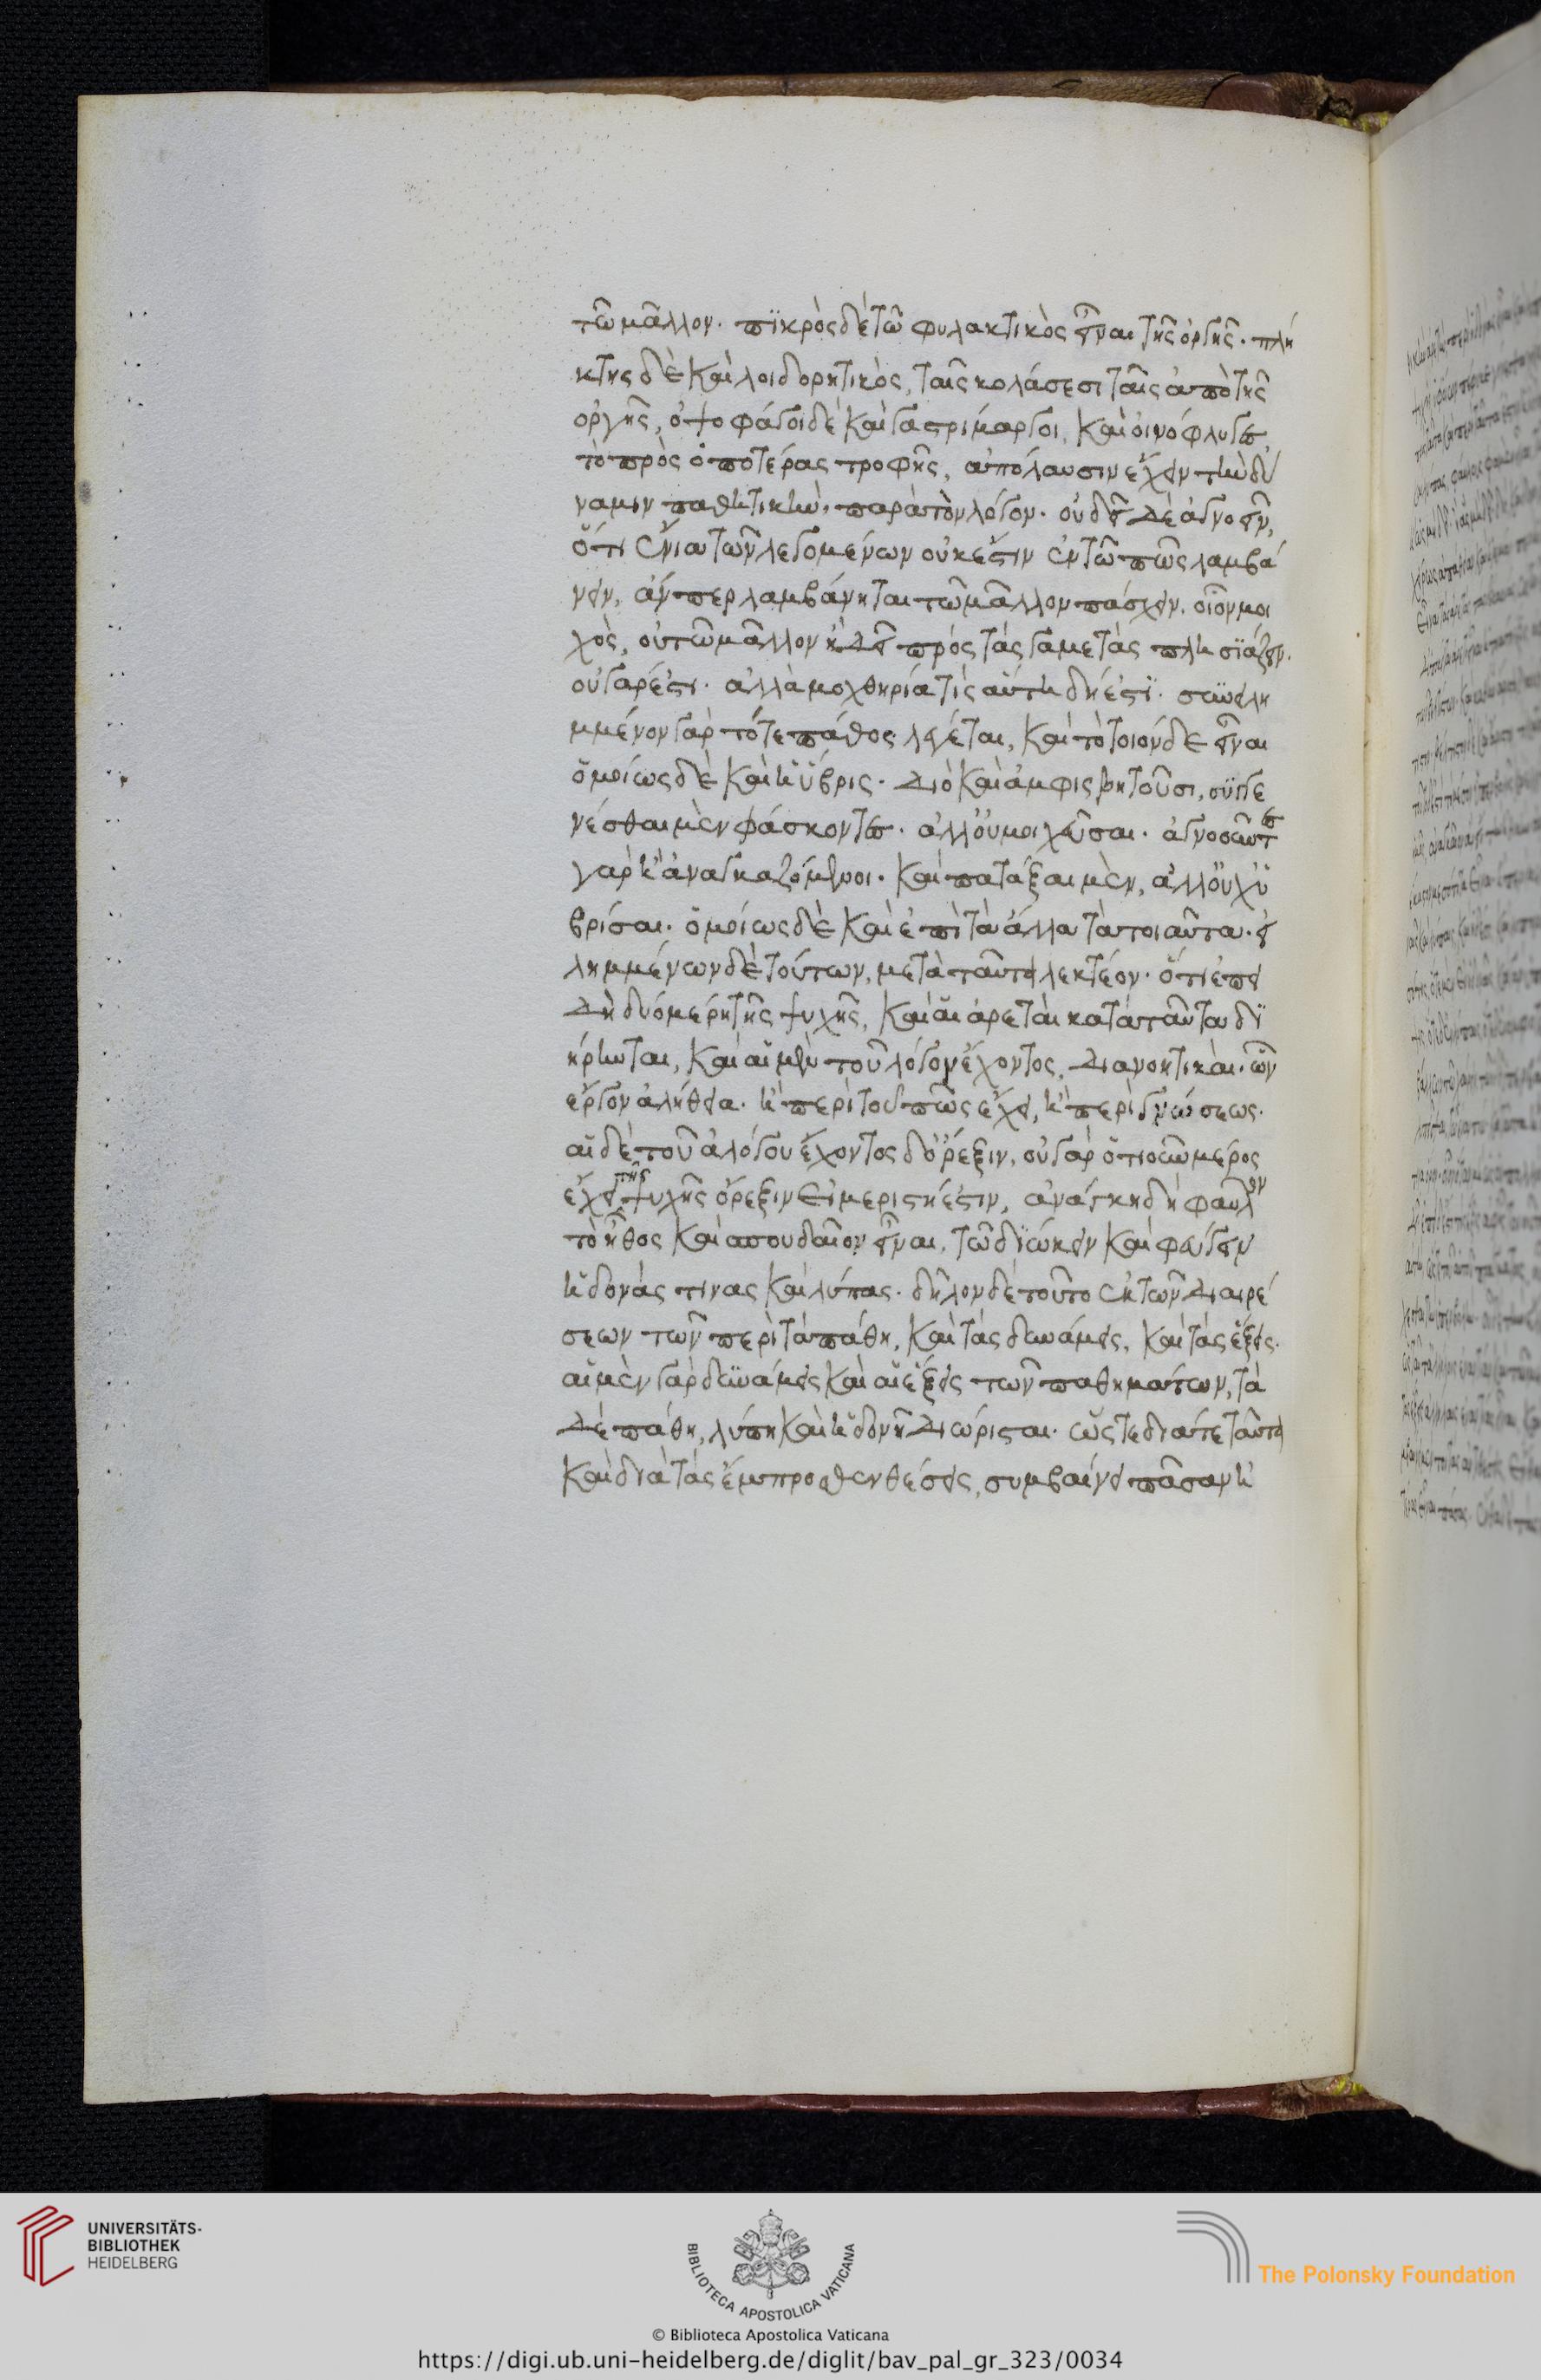 τῶ μᾶλλον. πϊκρὸς δὲ τῶ φυλακτικὸς εἶναι τῆς ὀργῆς. πλή
κτης δὲ καὶ λοιδορητικὸς, ταῖς κολάσεσι ταῖς ἀπὸ τῆς
ὀργῆς, ὀψοφάγοι δὲ καὶ γαστρίμαργοι, καὶ οἰνόφλυγες
τὸ πρὸς ὁποτέρας τροφῆς, ἀπόλαυσιν ἔχειν τὴν δύ
ναμιν παθητικὴν παρὰ τὸν λόγον. οὐ δεῖ δὲ ἀγνοεῖν,
ὅτι ἔνια τῶν λεγομένων οὐκ ἔστιν ἐν τῶ πῶς λαμβά
νειν, ἄν περ λαμβάνηται τῶ μᾶλλον πάσχειν. οἷον μοι
χὸς, οὐ τῶ μᾶλλον ἢ δεῖ πρός τὰς γαμετὰς πλησϊάζειν.
οὐ γάρ ἐστι. ἀλλὰ μοχθηρία τίς αὕτη δή ἐστϊ. συνειλη
μμένον γὰρ τό τε πάθος λέγεται, καὶ τὸ τοιόνδε εἶναι
ὅμοίως δὲ καὶ ἡ ὕβρις. διὸ καὶ ἀμφισβητοῦσι, συγγε
νέσθαι μὲν φάσκοντες. ἀλλ' οὐ μοιχεῦσαι. ἀγνοοῦντες
γὰρ ἢ ἀναγκαζόμενοι. καὶ πατάξαι μὲν, ἀλλ' οὐχ ὑ
βρίσαι. ὁμοίως δὲ καὶ ἐπὶ τὰ ἄλλα τὰ τοιαῦτα. εἰ
λημμένων δὲ τούτων, μετὰ ταῦτα λεκτέον. ὅτι ἐπει
δὴ δύο μέρη τῆς ψυχῆς, καὶ αἱ ἀρεταὶ κατὰ ταῦτα δι
ήρηνται, καὶ αἱ μὲν τοῦ λόγον ἔχοντος, διανοητικαὶ. ὧν
ἔργον ἀλήθεια. ἢ περὶ τοῦ πῶς ἔχει, ἢ περὶ γενέσεως.
αἱ δὲ τοῦ ἀλόγου ἔχοντος δ' ὄρεξιν, οὐ γὰρ ὁτιοῦν μέρος
ἔχει τῆς ψυχῆς ὄρεξιν εἰ μεριστή ἐστιν, ἀνάγκη δὴ φαῦλον
τὸ ἦθος καὶ σπουδαῖον εἶναι, τῶ διώκειν καὶ φεύγειν
ἡδονάς τινας καὶ λύπας. δῆλον δὲ τοῦτο ἐκ τῶν διαιρέ
σεων τῶν περὶ τὰ πάθη, καὶ τὰς δυνάμεις, καὶ τὰς ἕξεις.
αἱ μὲν γὰρ δυνάμεις καὶ αἱ ἕξεις τῶν παθημάτων, τὰ
δὲ πάθη, λύπη καὶ ἡδονῆ διώρισται. ὥστε διά τε ταῦτα
καὶ διὰ τὰς ἔμπροσθεν θέσεις, συμβαίνει πᾶσαν ἠ
UNIVERSITÄTS-
BIBLIOTHEK
HEIDELBERG
BIBLIOTECA APOSTOLICA VATICANA
The Polonsky Foundation
© Biblioteca Apostolica Vaticana
https://digi.ub.uni-heidelberg.de/diglit/bav_pal_gr_323/0034